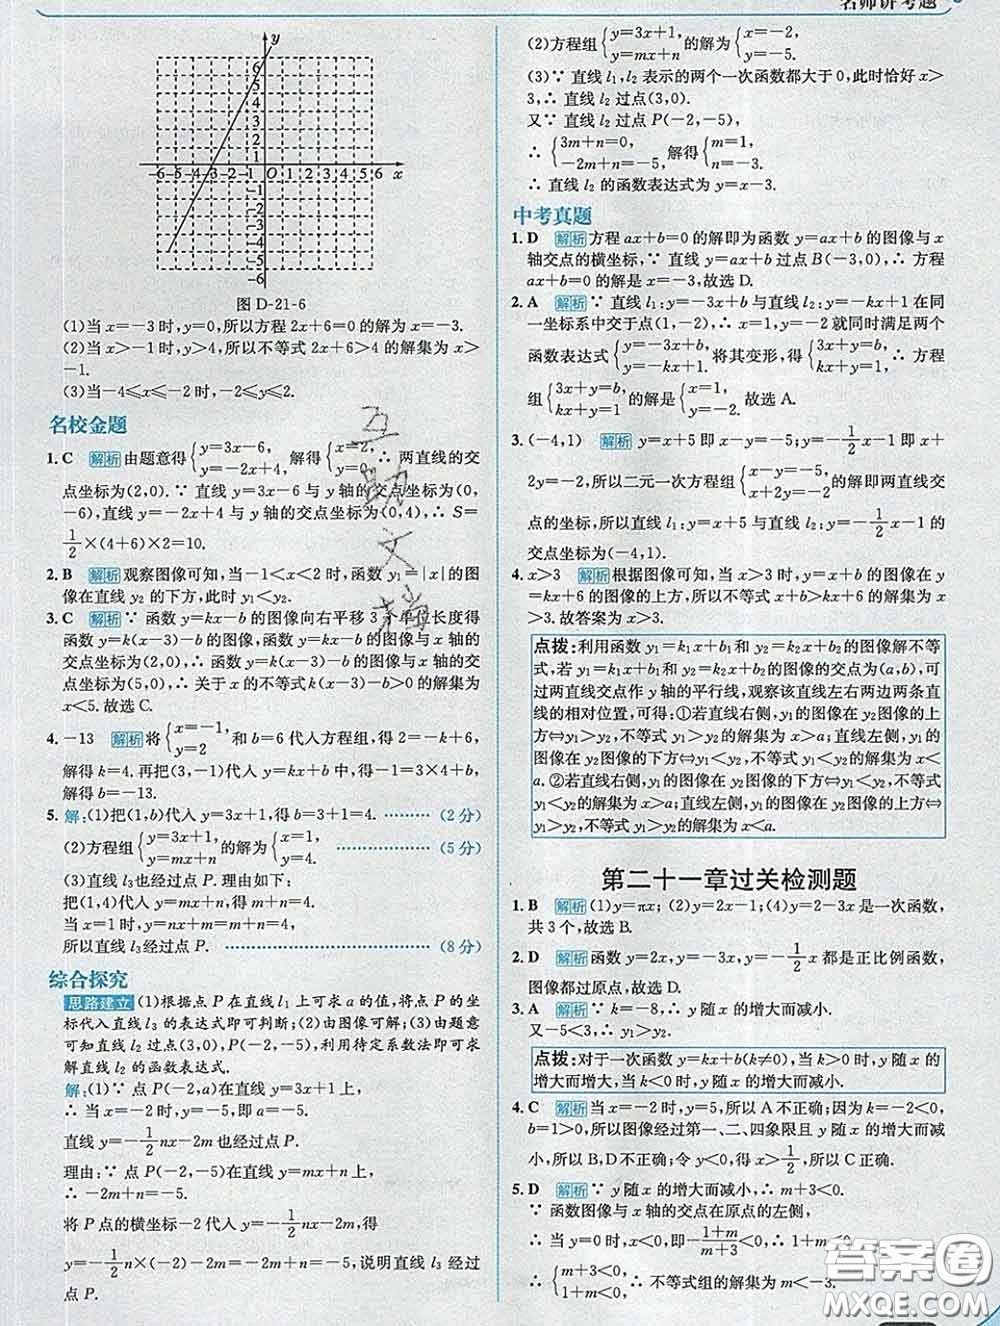 名师讲考题
y
6
5
4
3
2
1
-6 -5 -4 -3 -2 -1 O 1 2 3 4 5 6 x
-1
-2
-3
-4
-5
-6
图 D-21-6
(1)当 x=-3 时,y=0,所以方程 2x+6=0 的解为 x=-3.
(2)当 x>-1 时,y>4,所以不等式 2x+6>4 的解集为 x>
-1.
(3)当-4≤x≤-2 时,-2≤y≤2.
名校金题
1. C 解析 由题意得{y=3x-6, y=-2x+4, 解得{x=2, y=0, ∴ 两直线的交
点坐标为(2,0).∵ 直线 y=3x-6 与 y 轴的交点坐标为(0,
-6),直线 y=-2x+4 与 y 轴的交点坐标为(0,4),∴ S=
1/2×(4+6)×2=10.
2. B 解析 观察图像可知,当-1<x<2 时,函数 y₁=|x|的图
像在直线 y₂ 的下方,此时 y₁<y₂.
3. C 解析 ∵ 函数 y=kx-b 的图像向右平移 3 个单位长度得
函数 y=k(x-3)-b 的图像,函数 y=kx-b 的图像与 x 轴的
交点坐标为(2,0),∴ 函数 y=k(x-3)-b 的图像与 x 轴的
交点坐标为(5,0),∴ 关于 x 的不等式 k(x-3)-b>0 的解集为
x<5.故选 C.
4. -13 解析 将{x=-1, y=2 和 b=6 代入方程组,得 2=-k+6,
解得 k=4.再把(3,-1)代入 y=kx+b 中,得-1=3×4+b,
解得 b=-13.
5. 解:(1)把(1,b)代入 y=3x+1,得 b=3+1=4. ……… (2分)
(2)方程组{y=3x+1, y=mx+n 的解为{x=1, y=4. ……………… (5分)
(3)直线 l₃也经过点 P.理由如下:
把(1,4)代入 y=mx+n,得 m+n=4.
当 x=1 时,y=nx+m=n+m=4,
所以直线 l₃经过点 P. ……………………………… (8分)
综合探究
思路建立 (1)根据点 P 在直线 l₁ 上可求 a 的值,将点 P 的坐
标代入直线 l₃ 的表达式即可判断;(2)由图像可解;(3)由题意
可知直线 l₂ 过点(3,0),P(-2,-5),利用待定系数法即可求
解直线 l₂ 的函数表达式.
解:(1)∵ 点 P(-2,a)在直线 y=3x+1 上,
∴ 当 x=-2 时,y=-5,即 a=-5.
直线 y=-1/2nx-2m 也经过点 P.
理由:∵ 点 P(-2,-5)在直线 y=mx+n 上,
∴ -2m+n=-5.
将 P 点的横坐标-2 代入 y=-1/2nx-2m,得
y=-1/2n×(-2)-2m=n-2m=-5,说明直线 l₃ 经过
点 P.
(2)方程组{y=3x+1, y=mx+n 的解为{x=-2, y=-5.
(3)∵ 直线 l₁,l₂ 表示的两个一次函数都大于 0,此时恰好 x>
3,∴ 直线 l₂ 过点(3,0).
又∵ 直线 l₂ 过点 P(-2,-5),
∴ {3m+n=0, -2m+n=-5, 解得{m=1, n=-3.
∴ 直线 l₂ 的函数表达式为 y=x-3.
中考真题
1. D 解析 方程 ax+b=0 的解即为函数 y=ax+b 的图像与 x
轴交点的横坐标,∵ 直线 y=ax+b 过点 B(-3,0),∴ 方程
ax+b=0 的解是 x=-3,故选 D.
2. A 解析 ∵ 直线 l₁:y=-3x+b 与直线 l₂:y=-kx+1 在同
一坐标系中交于点(1,-2),∴ x=1,y=-2 就同时满足两个
函数表达式{y=-3x+b, y=-kx+1. 将其变形,得{3x+y=b, kx+y=1. ∴ 方程
组{3x+y=b, kx+y=1 的解是{x=1, y=-2. 故选 A.
3. (-4,1) 解析 y=x+5 即 x-y=-5;y=-1/2x-1 即 x+
2y=-2,所以二元一次方程组{x-y=-5, x+2y=-2 的解即两直线交
点的坐标,所以直线 l₁:y=x+5 与直线 l₂:y=-1/2x-1 的
交点坐标为(-4,1).
4. x>3 解析 根据图像可知,当 x>3 时,y=x+b 的图像在 y
=kx+6 的图像的上方,所以不等式 x+b>kx+6 的解集为 x
>3.故答案为 x>3.
点拨:利用函数 y₁=k₁x+b₁ 和 y₂=k₂x+b₂ 的图像解不等
式,若 y₁=k₁x+b₁ 和 y₂=k₂x+b₂ 的图像的交点为(a,b),可
过两直线交点作 y 轴的平行线,观察该直线左右两边两条直
线的相对位置,可得:①若直线右侧,y₁的图像在 y₂图像的上
方⇔y₁>y₂,不等式 y₁>y₂的解集为 x>a;直线左侧,y₁的
图像在 y₂ 图像的下方⇔y₁<y₂,不等式 y₁<y₂的解集为 x<
a.②若直线右侧,y₁的图像在 y₂图像的下方⇔y₁<y₂,不等式
y₁<y₂的解集为 x>a;直线左侧,y₁的图像在 y₂图像的上方⇔
y₁>y₂,不等式 y₁>y₂的解集为 x<a.
第二十一章过关检测题
1. B 解析 (1)y=πx;(2)y=2x-1;(4)y=2-3x 是一次函数,
共 3 个,故选 B.
2. D 解析 函数 y=2x,y=-3x,y=-1/2x 都是正比例函数,
图像都过原点,故选 D.
3. A 解析 ∵ k=-8,∴ y 随 x 的增大而减小.
又-5<3,∴ y₁>y₂.
点拨:对于一次函数 y=kx+b(k≠0),当 k>0 时,y 随 x 的
增大而增大,当 k<0 时,y 随 x 的增大而减小.
4. C 解析 当 x=-2 时,y=5,所以 A 不正确;因为 k=-2<0,
b=1>0,所以图像经过第一、二、四象限且 y 随 x 的增大而减
小,所以 B,D 不正确;令 y<0,得 x>1/2,所以 C 正确.
5. D 解析 ∵ y 随 x 的增大而减小,∴ m+3<0.
∵ 函数图像与 x 轴的交点在原点的左侧,
∴ 当 y=0 时,x<0,即-(1+m)/(m+3)<0,∴ 1+m<0,
∴ {m+3<0, 1+m<0, ∴ 不等式组的解集为 m<-3.
答案圈
MXQE.COM